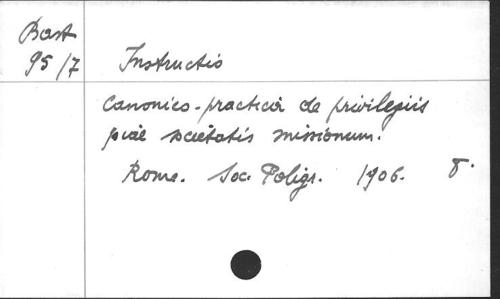 Bast
95/7 Instructio
canonico-practica de privilegiis
piae societatis missionum.
Roma. Soc. Poligr. 1906. 8.